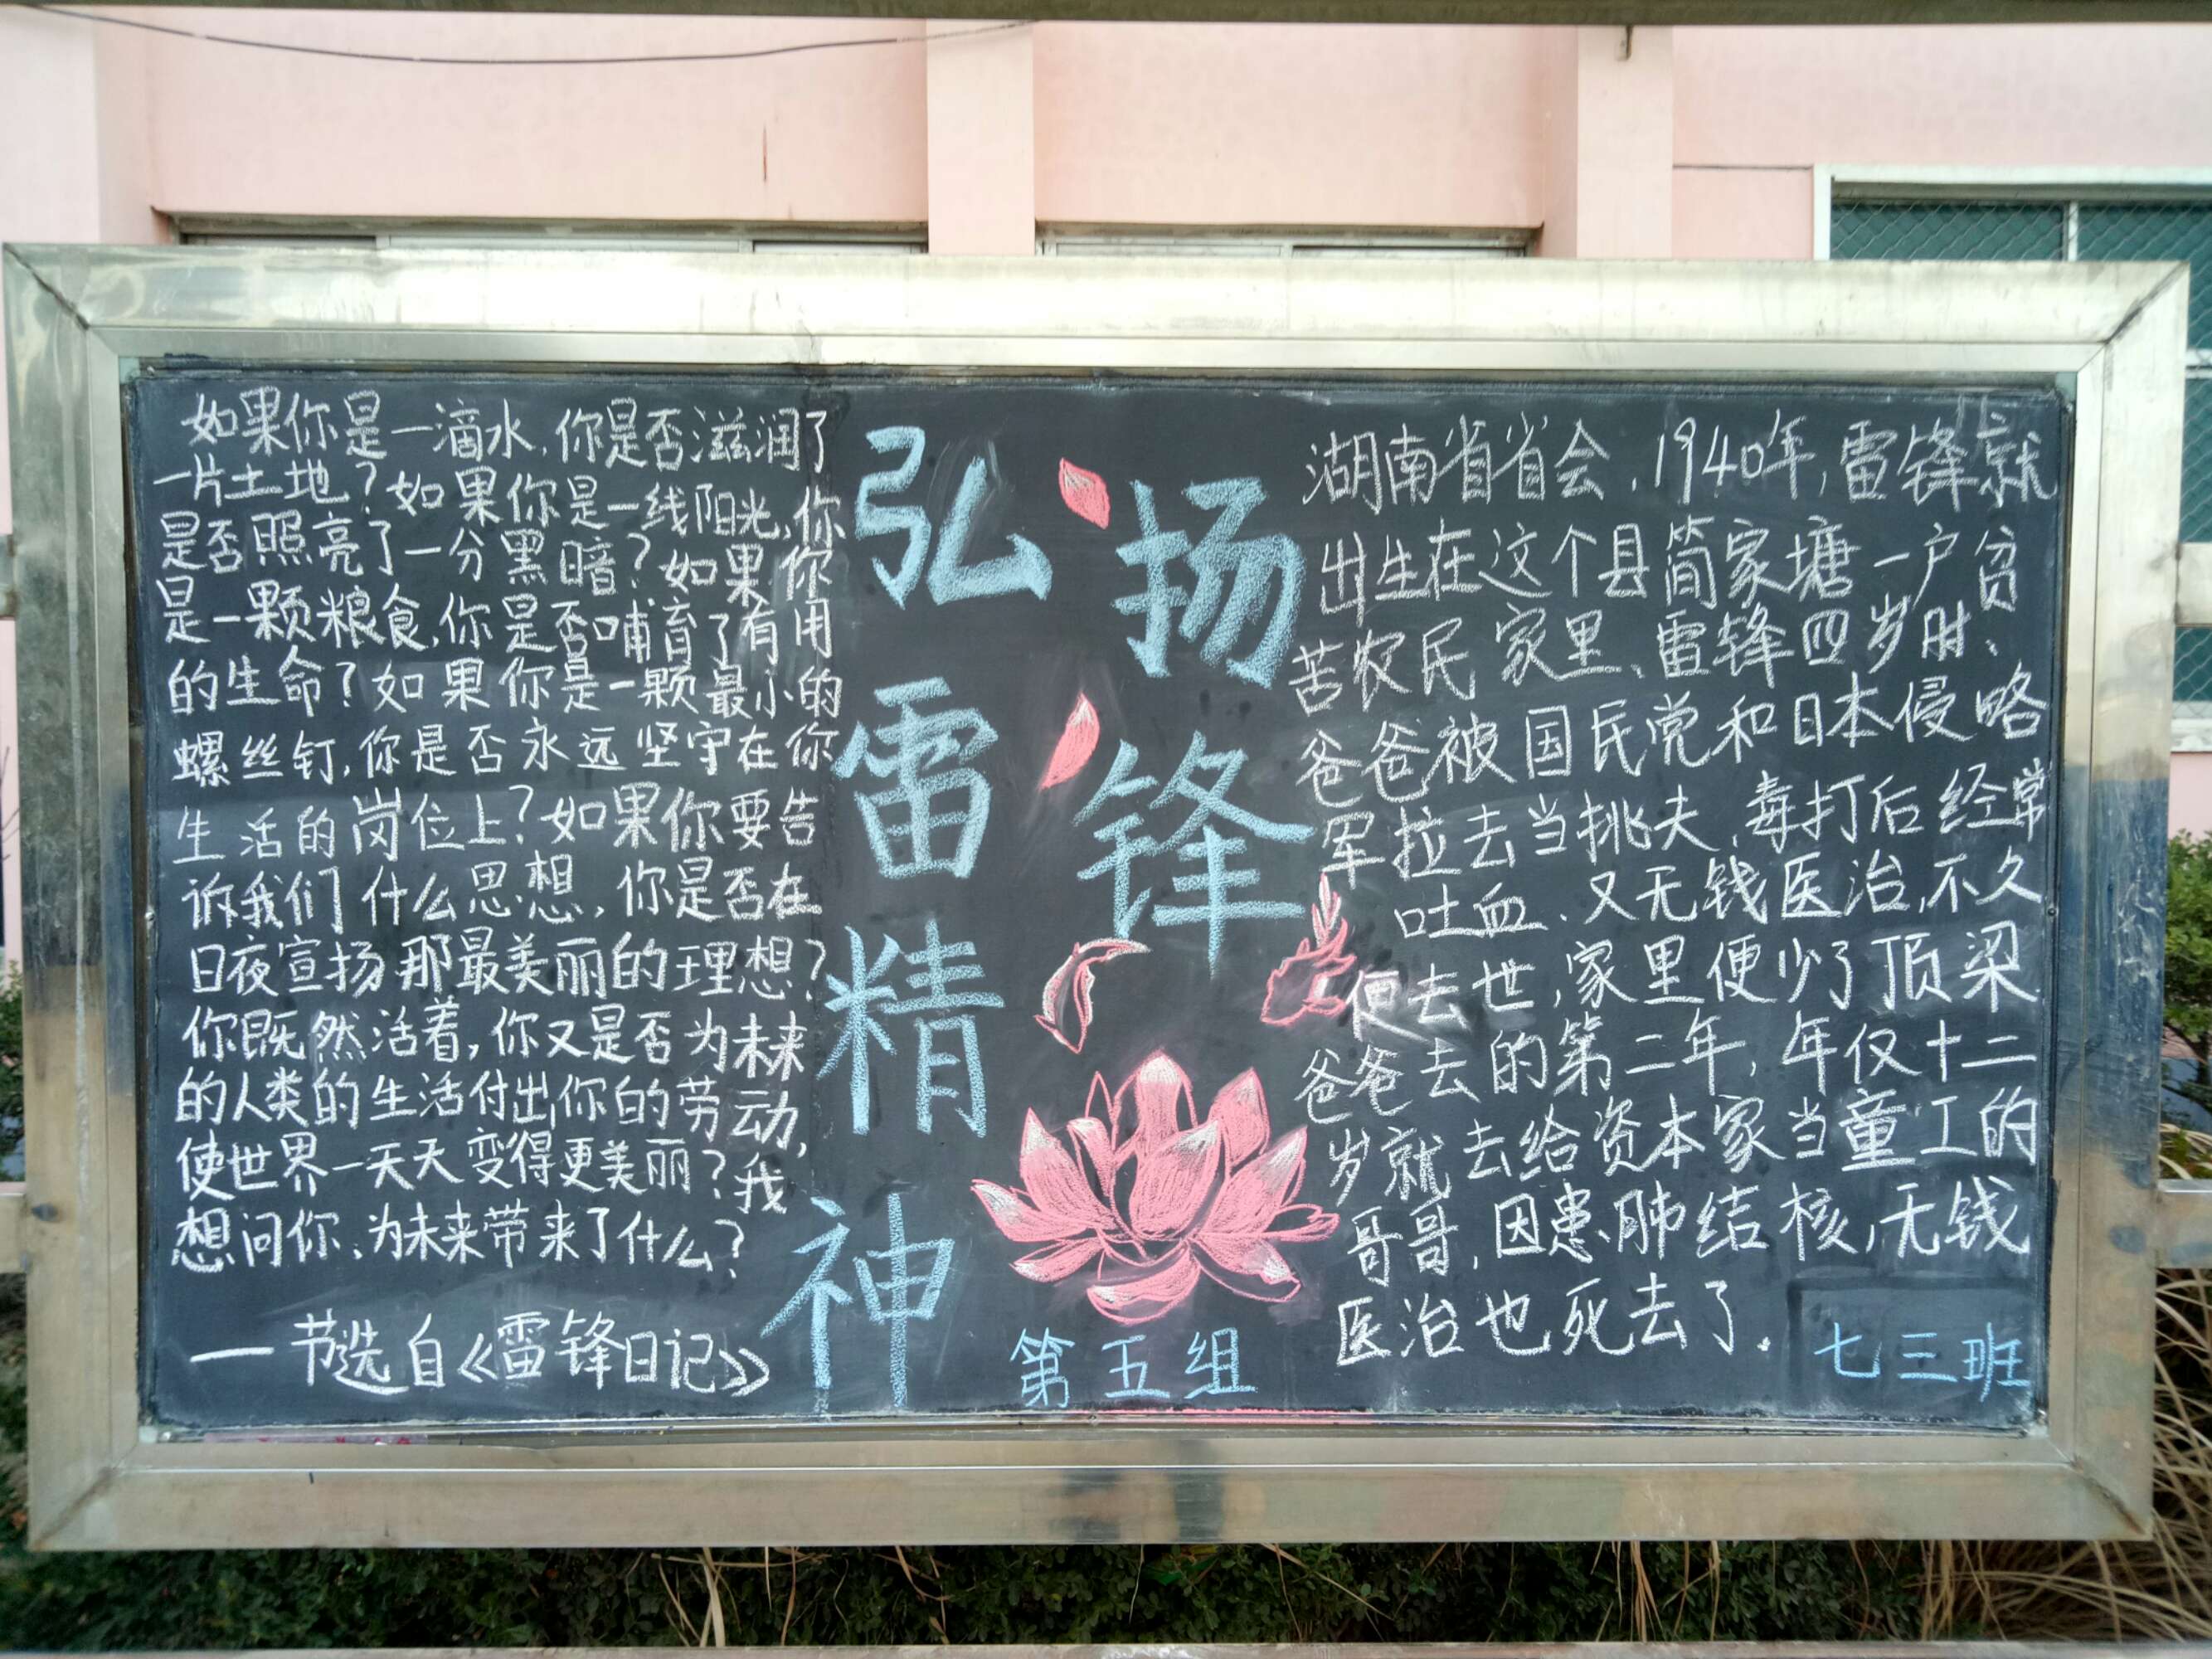 如果你是一滴水,你是否滋润了
一片土地?如果你是一线阳光,你
是否照亮了一分黑暗?如果你
是一颗粮食,你是否哺育了有用
的生命?如果你是一颗最小的
螺丝钉,你是否永远坚守在你
生活的岗位上?如果你要告
诉我们什么思想,你是否在
日夜宣扬那最美丽的理想?
你既然活着,你又是否为未来
的人类的生活付出你的劳动,
使世界一天天变得更美丽?我
想问你、为未来带来了什么?
一节选自《雷锋日记》
弘扬
雷锋
精
神
第五组
湖南省省会、1940年,雷锋就
出生在这个县简家塘一户贫
苦农民家里、雷锋四岁时、
爸爸被国民党和日本侵略
军拉去当挑夫、毒打后经常
吐血、又无钱医治,不久
便去世,家里便少了顶梁
爸爸去的第二年,年仅十二
岁就去给资本家当童工的
哥哥,因患肺结核,无钱
医治也死去了.
七三班